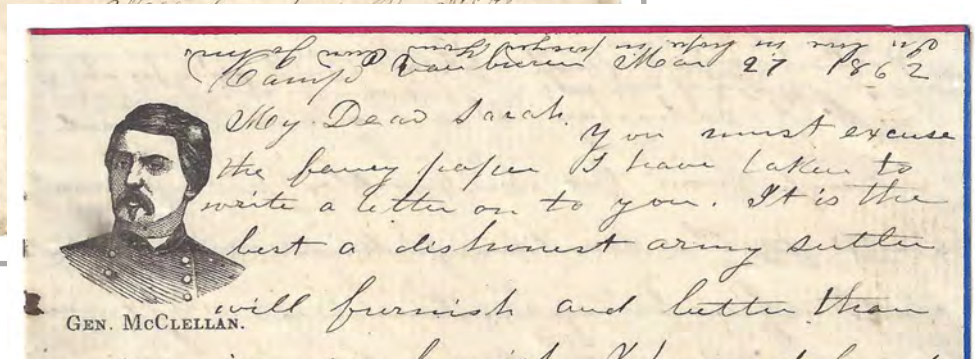 In love in hope in prayer Your Own John
Camp Van Buren Mar 27 1862
My Dear Sarah.
You must excuse
the fancy paper I have taken to
write a letter on to you. It is the
best a dishonest army sutler
will furnish and better than
GEN. MCCLELLAN.